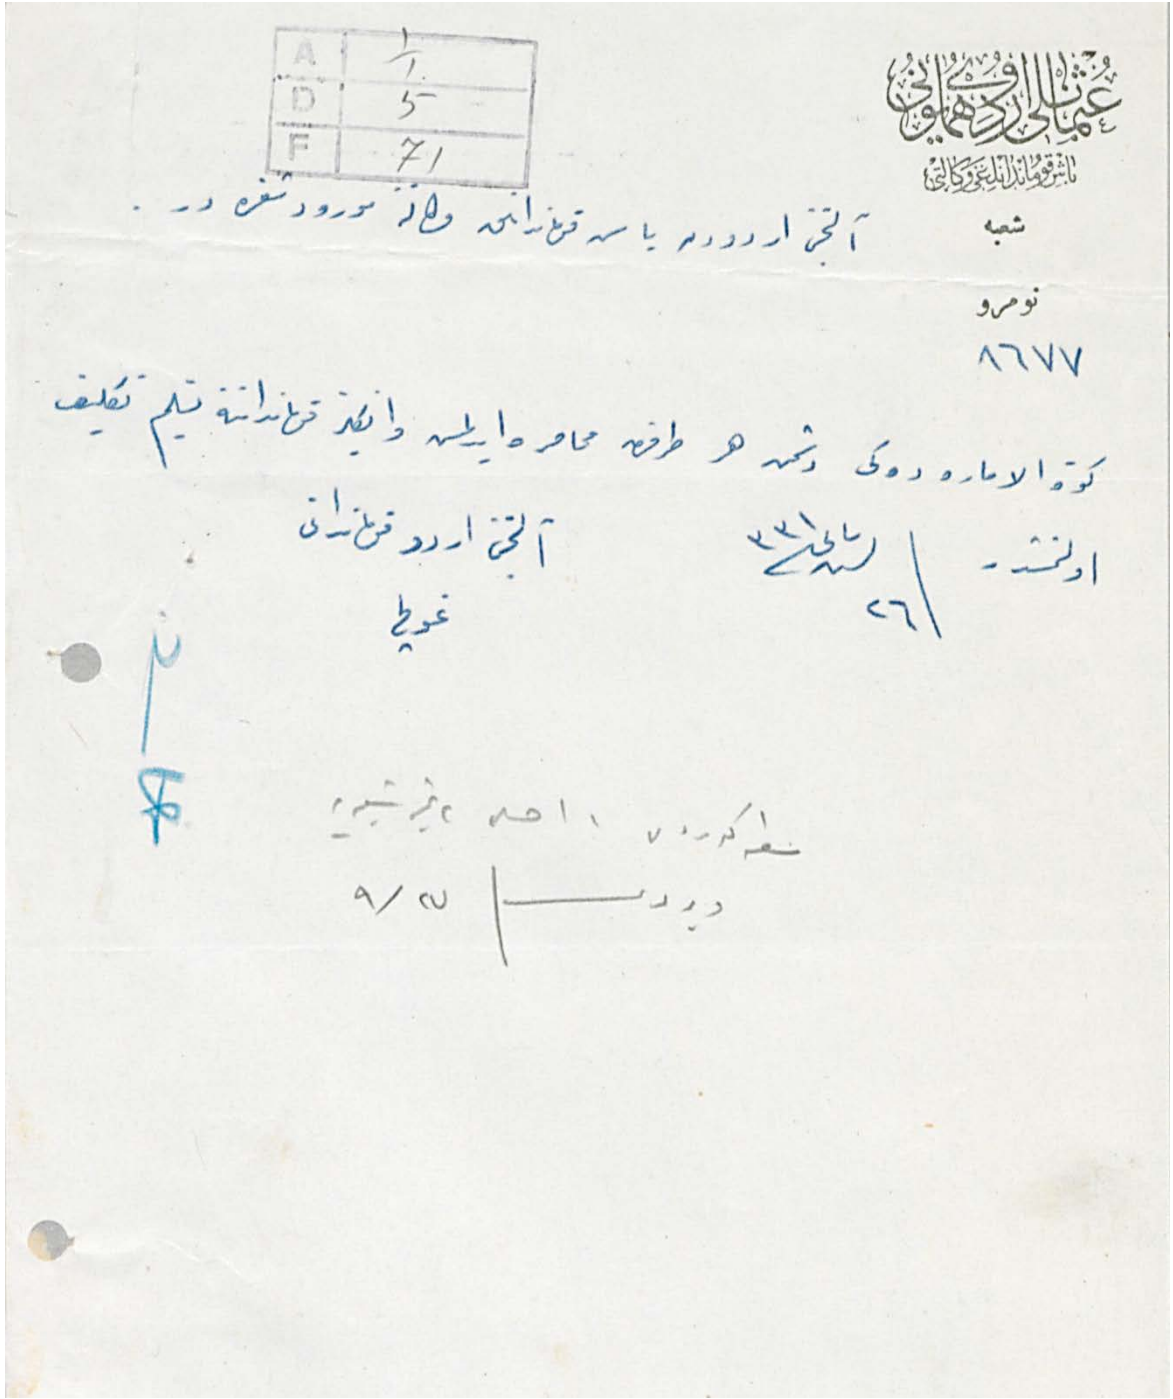 A ١/١
D ٥
F ٧١
عثمانلی اردوی همایونی
باش قوماندانلغی وكالتی
شعبه
آلتنجی اردودن باش قوماندانلق وكالتنه مورود شفره در .
نومرو
٨٦٧٧
كوت الاماره ده كی دشمن هر طرفدن محاصره ایدلمش و انكلیز قوماندانته تسلیم تكلیف
اولنمشدر ٢٦ تشرین ثانی ٣٣١
آلتنجی اردو قوماندانی
غولج
٢٧/٩